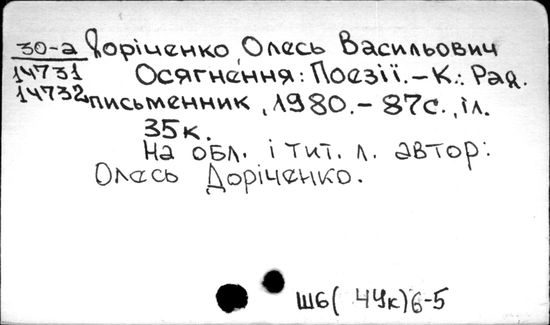 30-а Доріченко, Олесь Васильович
14731 Осягнення: Поезії. – К.: Рад.
14732 письменник, 1980. – 87с., іл.
35к.
На обл. і тит. л. автор:
Олесь Доріченко.
Ш6(44к)6-5